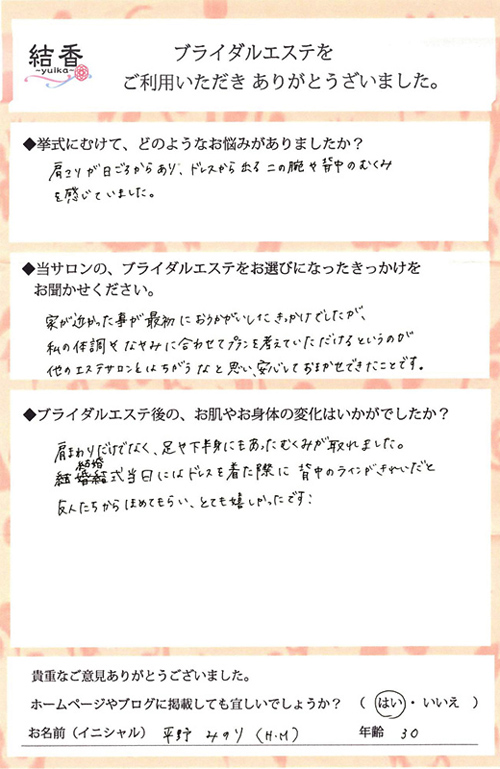 結香
-yuika-
ブライダルエステを
ご利用いただき ありがとうざいました。
◆挙式にむけて、どのようなお悩みがありましたか？
肩こりが日ごろからあり、ドレスから出る二の腕や背中のむくみ
を感じていました。
◆当サロンの、ブライダルエステをお選びになったきっかけを
お聞かせください。
家が近かった事が最初におうかがいしたきっかけでしたが、
私の体調やなやみに合わせてプランを考えていただけるというのが
他のエステサロンとはちがうなと思い、安心しておまかせできたことです。
◆ブライダルエステ後の、お肌やお身体の変化はいかがでしたか？
肩まわりだけでなく、足や下半身にもあったむくみが取れました。
結婚
式当日にはドレスを着た際に背中のラインがきれいだと
友人たちからほめてもらい、とても嬉しかったです:
貴重なご意見ありがとうございました。
ホームページやブログに掲載しても宜しいでしょうか？ （ はい ・ いいえ ）
お名前（イニシャル） 平野 みのり (H.M) 年齢 30